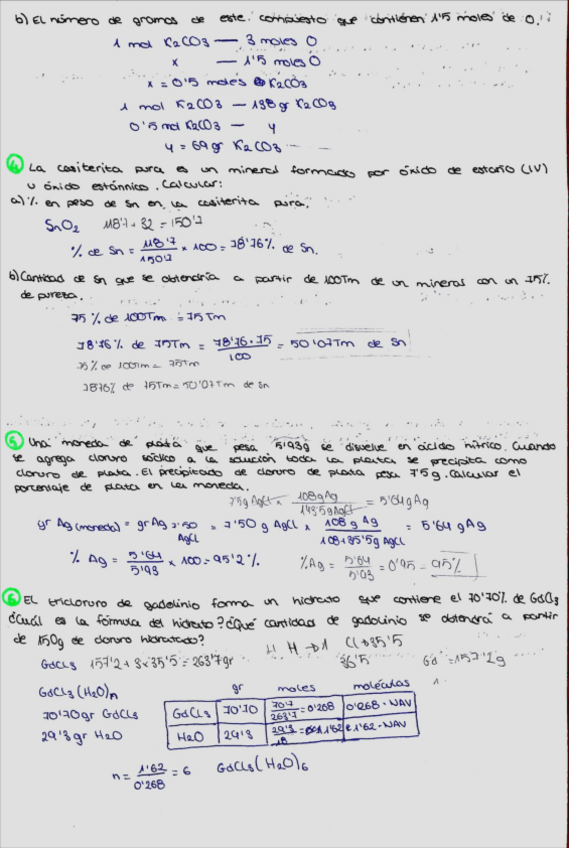 b) El número de gramos de este compuesto que contienen 1'5 moles de O.
1 mol K2CO3 — 3 moles O
x — 1'5 moles O
x = 0'5 moles K2CO3
1 mol K2CO3 — 138 gr K2CO3
0'5 mol K2CO3 — y
y = 69 gr K2CO3
4 La casiterita pura es un mineral formado por óxido de estaño (IV)
u óxido estánnico. Calcular:
a) % en peso de Sn en la casiterita pura.
SnO2 118'7 + 32 = 150'7
% de Sn = 118'7 / 150'7 × 100 = 78'76% de Sn.
b) Cantidad de Sn que se obtendría a partir de 100Tm de un mineral con un 75%
de pureza.
75 % de 100Tm = 75Tm
78'76 % de 75Tm = 78'76 · 75 / 100 = 50'07Tm de Sn
75% de 100Tm = 75Tm
7876% de 75Tm = 50'07Tm de Sn
5 Una moneda de plata que pesa 5'93g se disuelve en ácido nítrico. Cuando
se agrega cloruro sódico a la solución toda la plata se precipita como
cloruro de plata. El precipitado de cloruro de plata pesa 7'5g. Calcular el
porcentaje de plata en la moneda.
7'5g AgCl × 108g Ag / 143'5g AgCl = 5'64g Ag
gr Ag (moneda) = gr Ag 7'50 AgCl = 7'50 g AgCl × 108 g Ag / 108+35'5g AgCl = 5'64 g Ag
% Ag = 5'64 / 5'93 × 100 = 95'2 % %Ag = 5'64 / 5'93 = 0'95 - 95%
6 El tricloruro de gadolinio forma un hidrato que contiene el 70'70% de GdCl3
¿Cuál es la fórmula del hidrato? ¿Qué cantidad de gadolinio se obtendrá a partir
de 150g de cloruro hidratado?
H → 1 Cl → 35'5
GdCl3 157'2 + 3 × 35'5 = 263'7gr 36'5 Gd = 157'2g
GdCl3 (H2O)n
gr moles moléculas
70'70 gr GdCl3
GdCl3 70'70 70'7 / 263'7 = 0'268 0'268 · NAV
29'3 gr H2O
H2O 29'3 29'3 / 18 = 1'62 1'62 · NAV
n = 1'62 / 0'268 = 6 GdCl3 (H2O)6